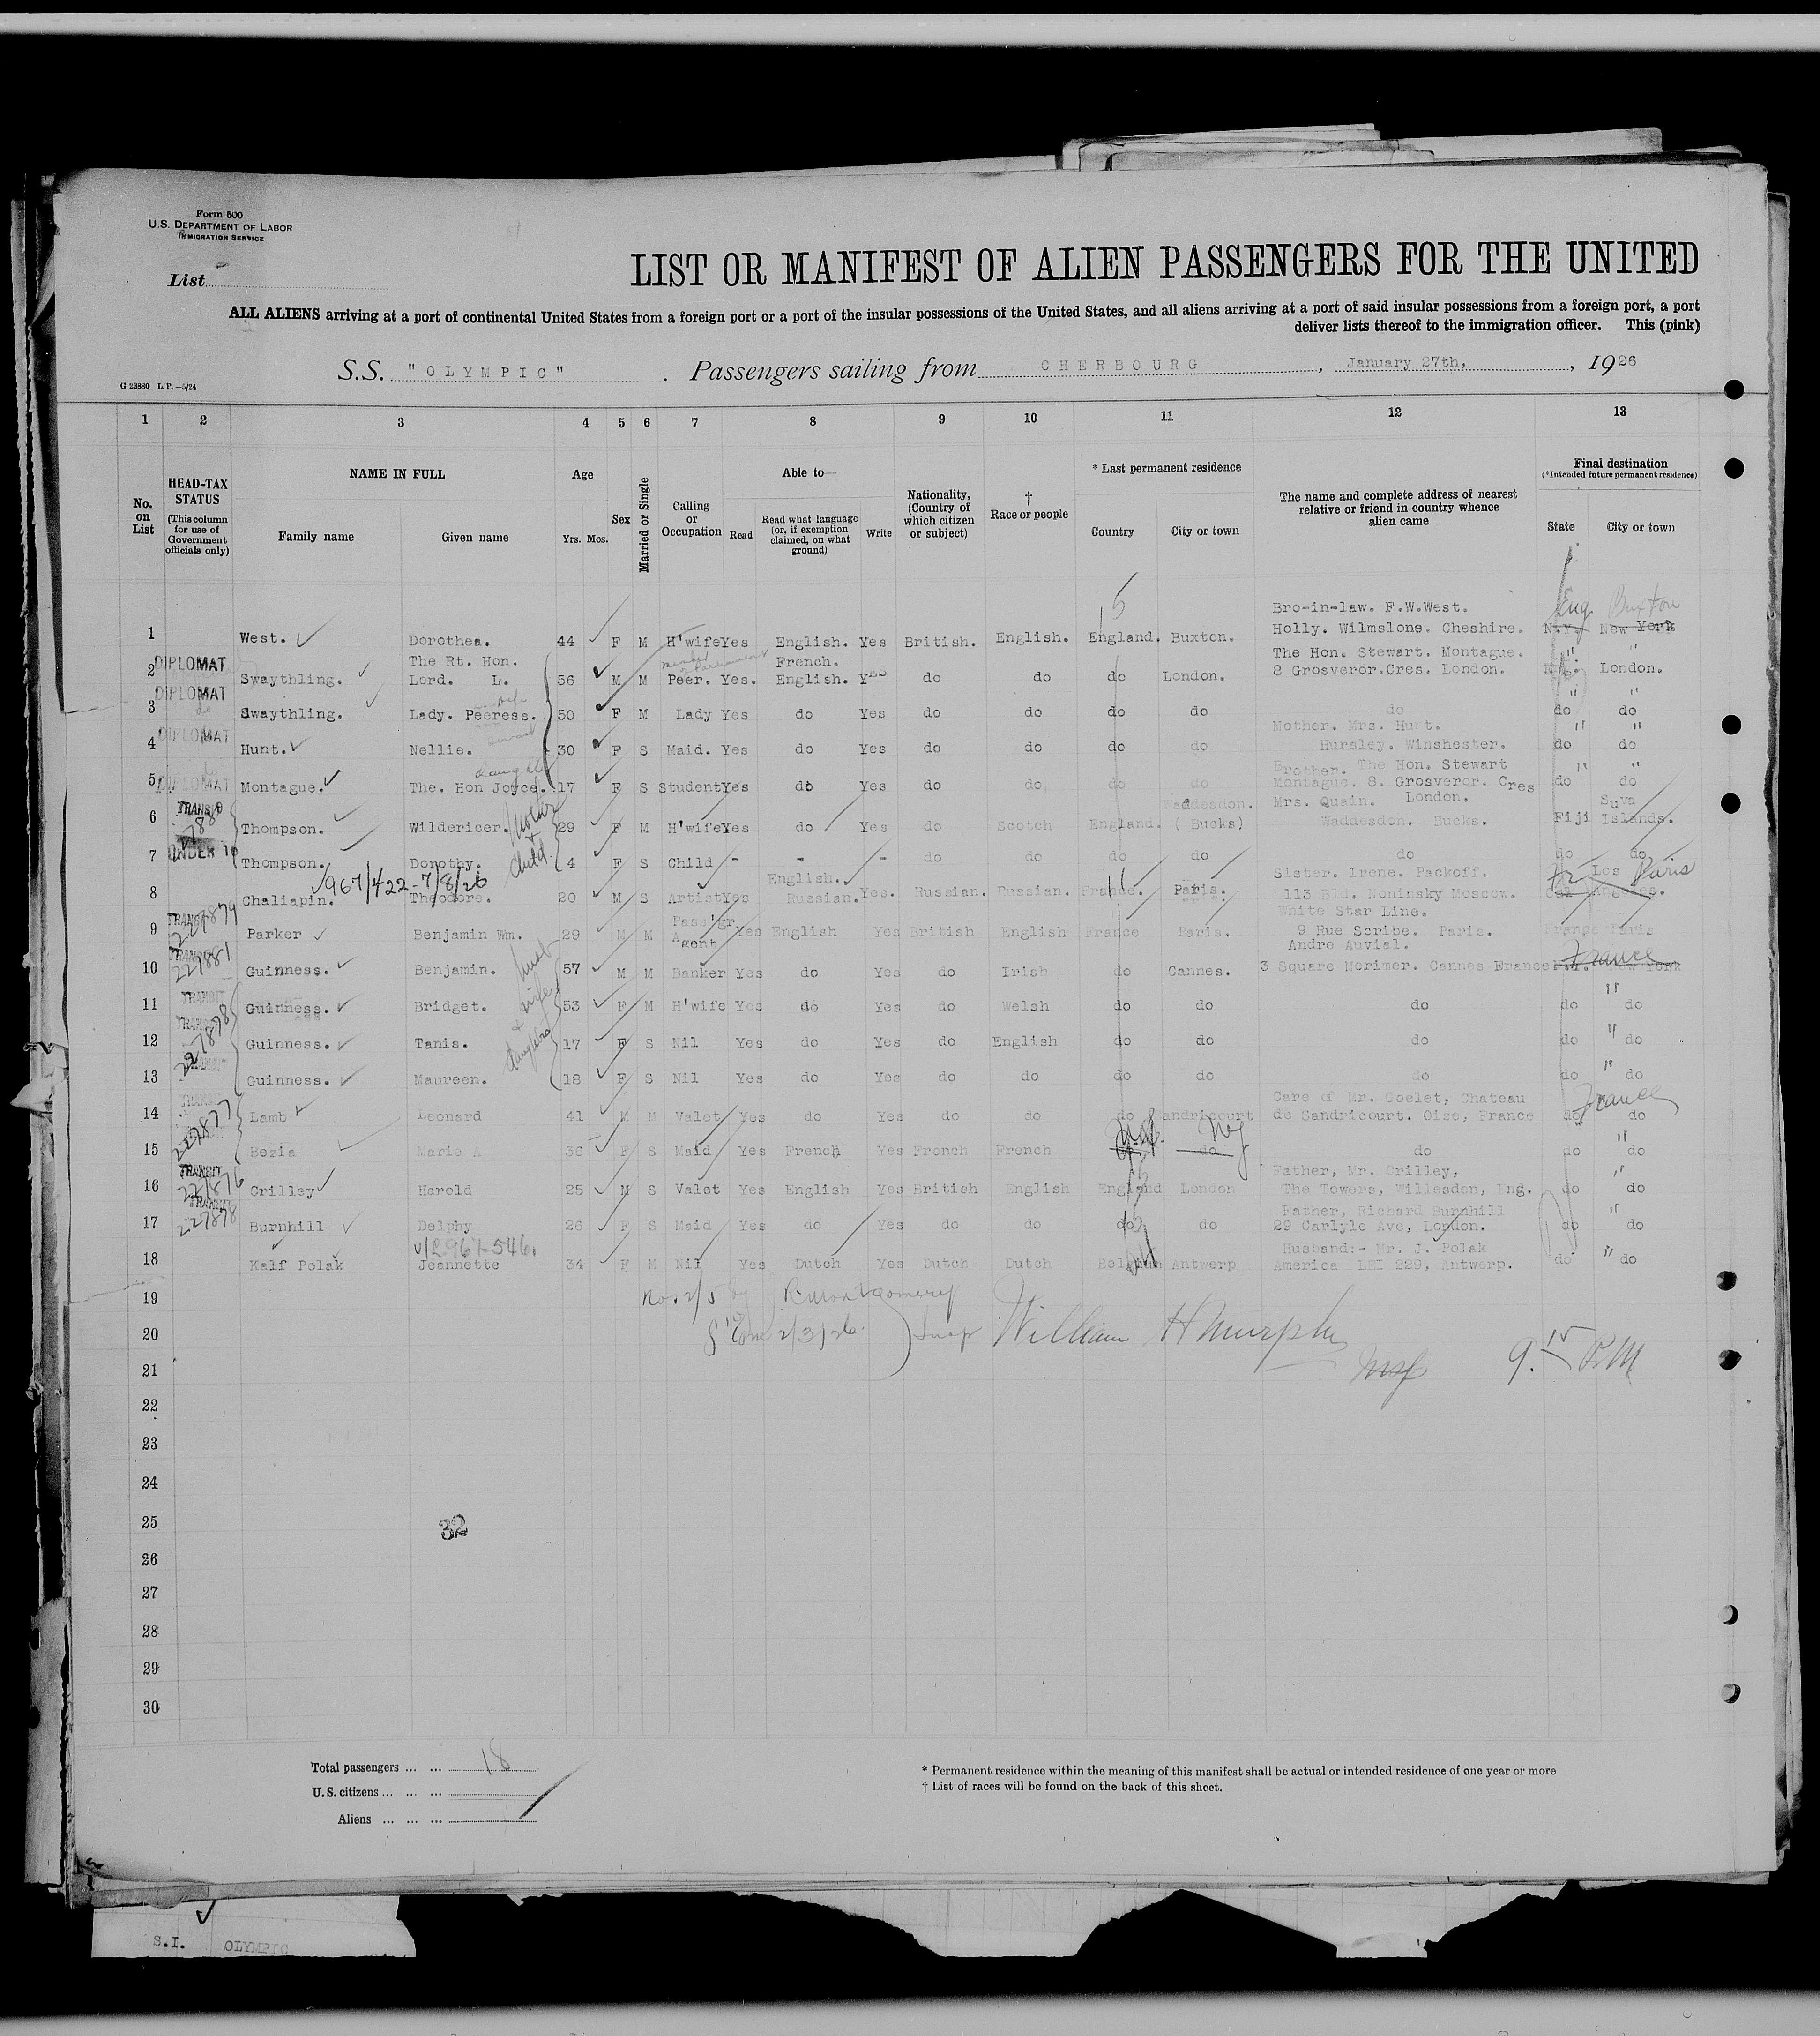 Form 500
U.S. DEPARTMENT OF LABOR
IMMIGRATION SERVICE
List
LIST OR MANIFEST OF ALIEN PASSENGERS FOR THE UNITED
ALL ALIENS arriving at a port of continental United States from a foreign port or a port of the insular possessions of the United States, and all aliens arriving at a port of said insular possessions from a foreign port, a port
deliver lists thereof to the immigration officer. This (pink)
G 23880 L.P.—5/24
S.S. "OLYMPIC" . Passengers sailing from CHERBOURG , January 27th, , 1926
1 2 3 4 5 6 7 8 9 10 11 12 13
No. on List
HEAD-TAX STATUS (This column for use of Government officials only)
NAME IN FULL
Family name
Given name
Age
Yrs. Mos.
Sex
Married or Single
Calling or Occupation
Able to—
Read
Read what language (or, if exemption claimed, on what ground)
Write
Nationality, (Country of which citizen or subject)
† Race or people
* Last permanent residence
Country
City or town
The name and complete address of nearest relative or friend in country whence alien came
Final destination
(*Intended future permanent residence)
State
City or town
Bro-in-law. F.W.West.
Eng. Buxton
1 West. Dorothea. 44 F M H'wife Yes English. Yes British. English. England. Buxton. Holly. Wilmslone. Cheshire. N.Y. New York
DIPLOMAT The Rt. Hon. French. The Hon. Stewart. Montague. " "
2 Swaythling. Lord. L. 56 M M Peer. Yes. English. Yes do do do London. 8 Grosveror.Cres. London. London.
DIPLOMAT " "
3 Swaythling. Lady. Peeress. 50 F M Lady Yes do Yes do do do do do do do
DIPLOMAT Mother. Mrs. Hunt. " "
4 Hunt. Nellie. 30 F S Maid. Yes do Yes do do do do Hursley. Winshester. do do
daughter Brother. The Hon. Stewart " "
5 DIPLOMAT Montague. The. Hon Joyce. 17 F S Student Yes do Yes do do do do Montague. 8. Grosveror. Cres do do
TRANSIT Waddesdon. Mrs. Quain. London. Suva
6 Thompson. Wildericer. 29 F M H'wife Yes do Yes do Scotch England. ( Bucks) Waddesdon. Bucks. Fiji Islands.
Mother & child.
7 UNDER 16 Thompson. Dorothy. 4 F S Child - - - do do do do do do do
967/422-7/8/26 English. Sister. Irene. Packoff. Fr Los Paris
8 Chaliapin. Theodore. 20 M S Artist Yes Russian. Yes. Russian. Russian. France. Paris. 113 Bld. Noninsky Moscow. Cal Angeles.
TRANSIT 227879 Pass'gr White Star Line.
9 Parker Benjamin Wm. 29 M M Agent Yes English Yes British English France Paris. 9 Rue Scribe. Paris. France Paris
TRANSIT 227881 Andre Auvial. France
10 Guinness. Benjamin. 57 M M Banker Yes do Yes do Irish do Cannes. 3 Square Merimer. Cannes France New York
TRANSIT "
11 Guinness. Bridget. 53 F M H'wife Yes do Yes do Welsh do do do do do
wife & daughters
TRANSIT 227878 "
12 Guinness. Tanis. 17 F S Nil Yes do Yes do English do do do do do
TRANSIT "
13 Guinness. Maureen. 18 F S Nil Yes do Yes do do do do do do do
TRANSIT 227877 Care of Mr. Goelet, Chateau France
14 Lamb Leonard 41 M M Valet Yes do Yes do do do Sandricourt de Sandricourt. Oise, France do do
N.Y. "
15 Bezia Marie A 36 F S Maid Yes French Yes French French do do do do
TRANSIT 227876 Father, Mr. Crilley, "
16 Crilley Harold 25 M S Valet Yes English Yes British English England London The Towers, Willesden, Eng. do do
TRANSIT 227878 Father, Richard Burnhill "
17 Burnhill Delphy 26 F S Maid Yes do Yes do do do do 29 Carlyle Ave, London. do do
Husband:- Mr. J. Polak "
18 Kalf Polak Jeannette 34 F M Nil Yes Dutch Yes Dutch Dutch Belgium Antwerp America LEI 229, Antwerp. do do
19 Nos 2/5 by R Montgomery
20 2/3/26 Insp William H Murphy
21 9.15 PM
22
23
24
25
32
26
27
28
29
30
Total passengers ... ... 18
U.S. citizens ... ... ...
Aliens ... ... ...
* Permanent residence within the meaning of this manifest shall be actual or intended residence of one year or more
† List of races will be found on the back of this sheet.
S.I. OLYMPIC